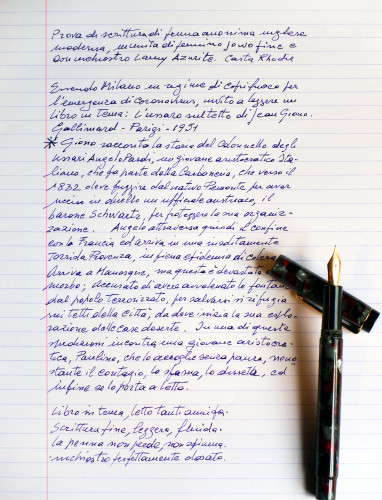 Prova di scrittura di penna anonima inglese
moderna, munita di pennino Jowo fine e
con inchiostro Lamy Azurite. Carta Rhodia
Essendo Milano in regime di coprifuoco per
l'emergenza di Coronavirus, invito a leggere un
libro in tema: L'ussaro sul tetto di Jean Giono.
Gallimard - Parigi - 1951
* Giono racconta la storia del Colonnello degli
Ussari Angelo Pardi, un giovane aristocratico Ita-
liano, che fa parte della Carboneria, che verso il
1832 deve fuggire dal nativo Piemonte per aver
ucciso in duello un ufficiale austriaco, il
barone Schwartz, per proteggere la sua organiz-
zazione. Angelo attraversa quindi il confine
con la Francia ed arriva in una inusitatamente
torrida Provenza, in piena epidemia di Colera.
Arriva a Manosque, ma questa è devastata dal
morbo; accusato di avere avvelenato le fontane
dal popolo terrorizzato, per salvarsi si rifugia
sui tetti della città, da dove inizia la sua esplo-
razione delle case deserte. In una di queste
spedizioni incontra una giovane aristocra-
tica, Pauline, che lo accoglie senza paura, nono
stante il contagio, lo sfama, lo disseta, ed
infine se lo porta a letto.
Libro in tema, letto tanti anni fa.
Scrittura fine, leggera, fluida.
la penna non perde, non spiuma.
inchiostro perfettamente dosato.